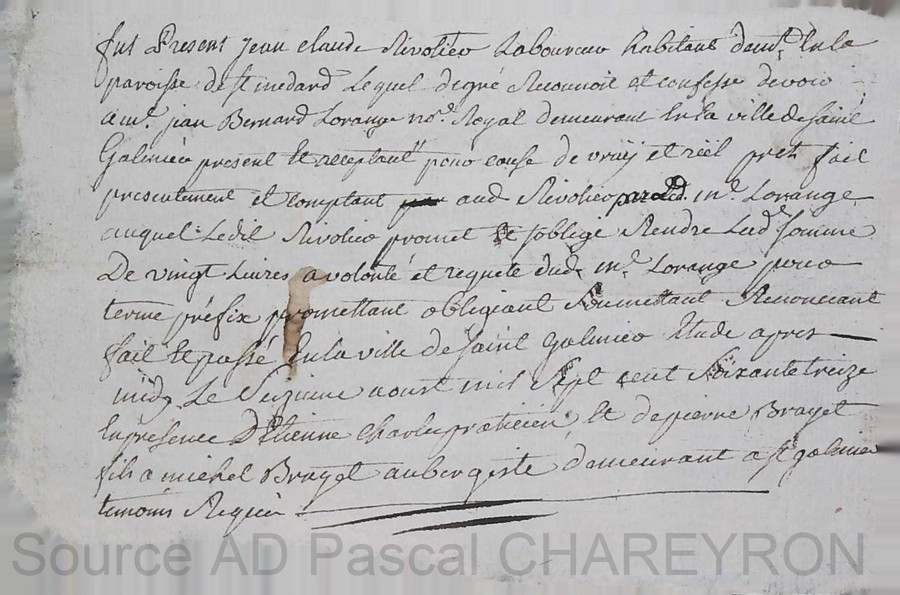 fut Present jean claude Rivolier Laboureur habitant demt. En la
paroisse de st medard Lequel de gré Reconnoit et confesse devoir
a me. jean Bernard Lorange nore. Royal demeurant En la ville de saint
Galmier present Et acceptant pour cause de vray et réel prêt fait
presentement et comptant aud Rivolier par led. me. Lorange
auquel Ledit Rivolier promet Et soblige Rendre Lad. somme
De vingt Livres a volonté et requete dud. me. Lorange pour
terme préfix promettant obligeant Soumettant Renoncant
fait Et passé En la ville de saint galmier Etude apres
midy Le Seizieme aoust mil Sept cent Soixante treize
En presence D'Etienne Charles praticien Et de pierre Brayet
fils a michel Brayet aubergiste demeurant a st galmier
temoins Requis
Source AD Pascal CHAREYRON